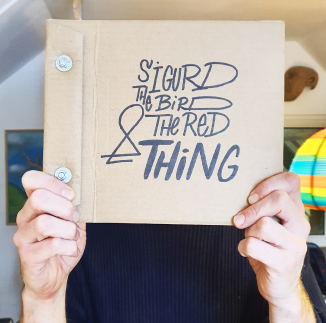 SiGURD
THE BiRD
& THE RED
THiNG